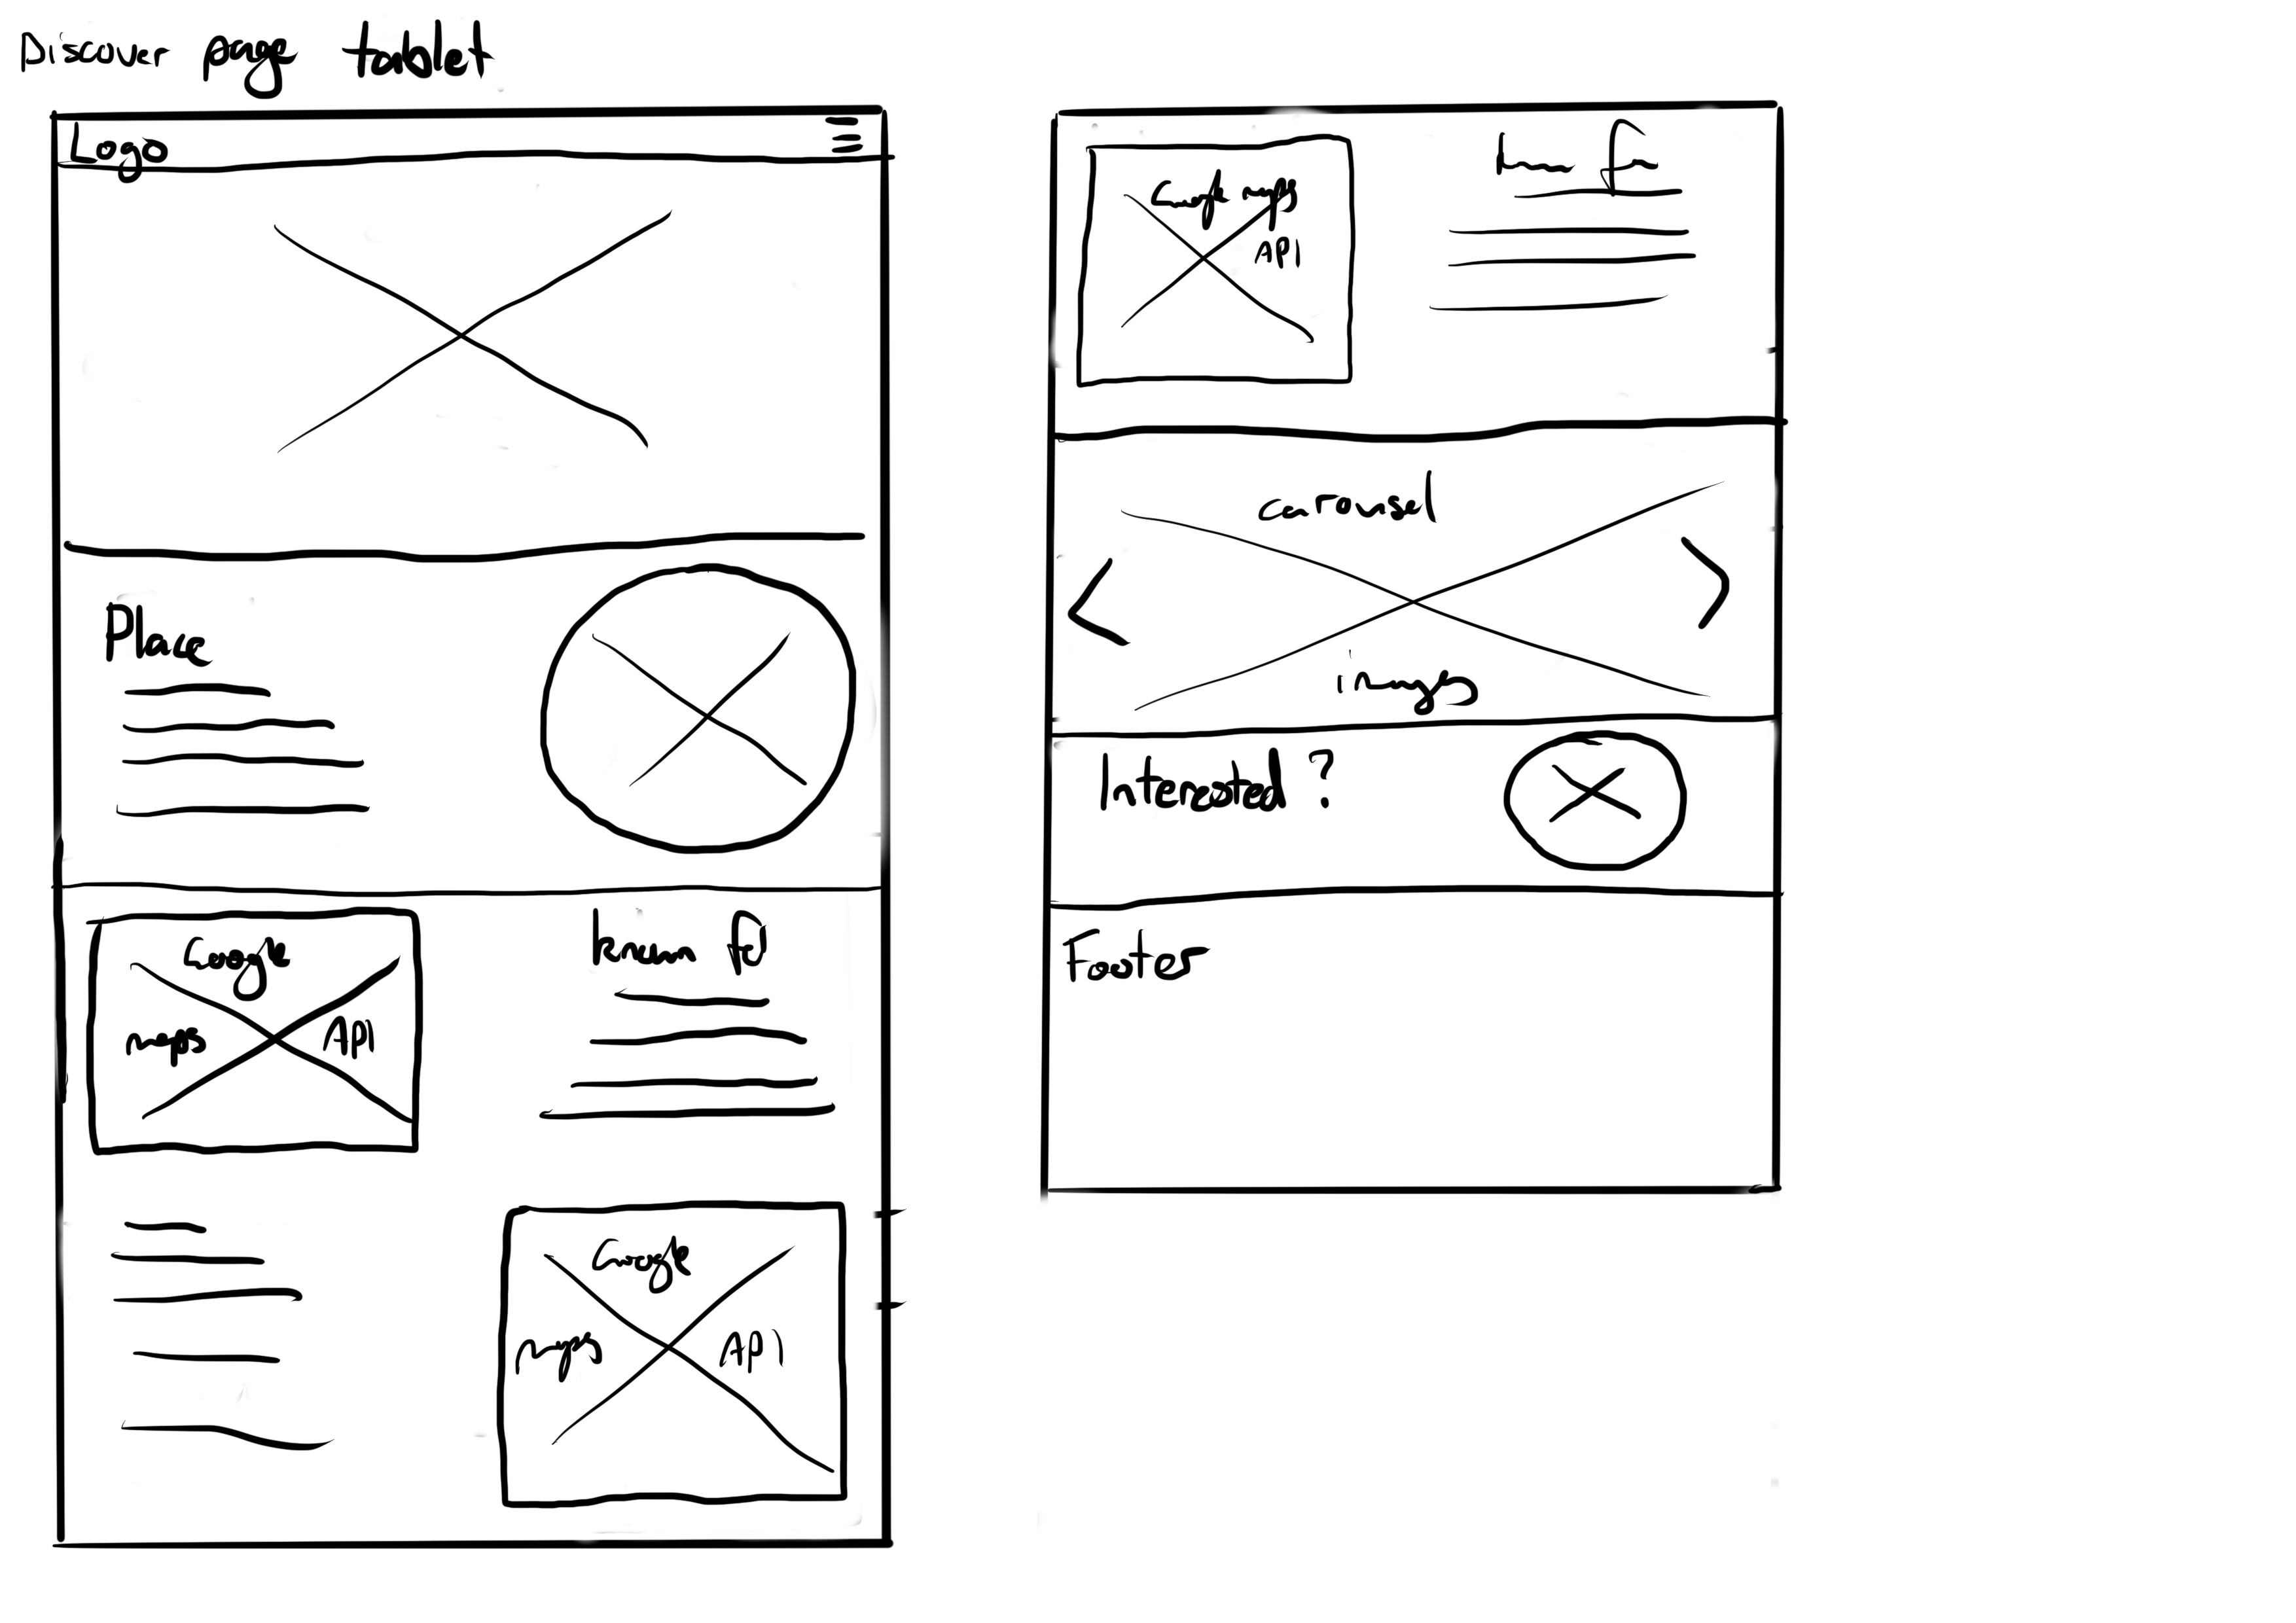 Discover page tablet
Logo
Place
Google
maps API
known for
Google
maps API
Google maps
API
carousel
images
Interested ?
Footer